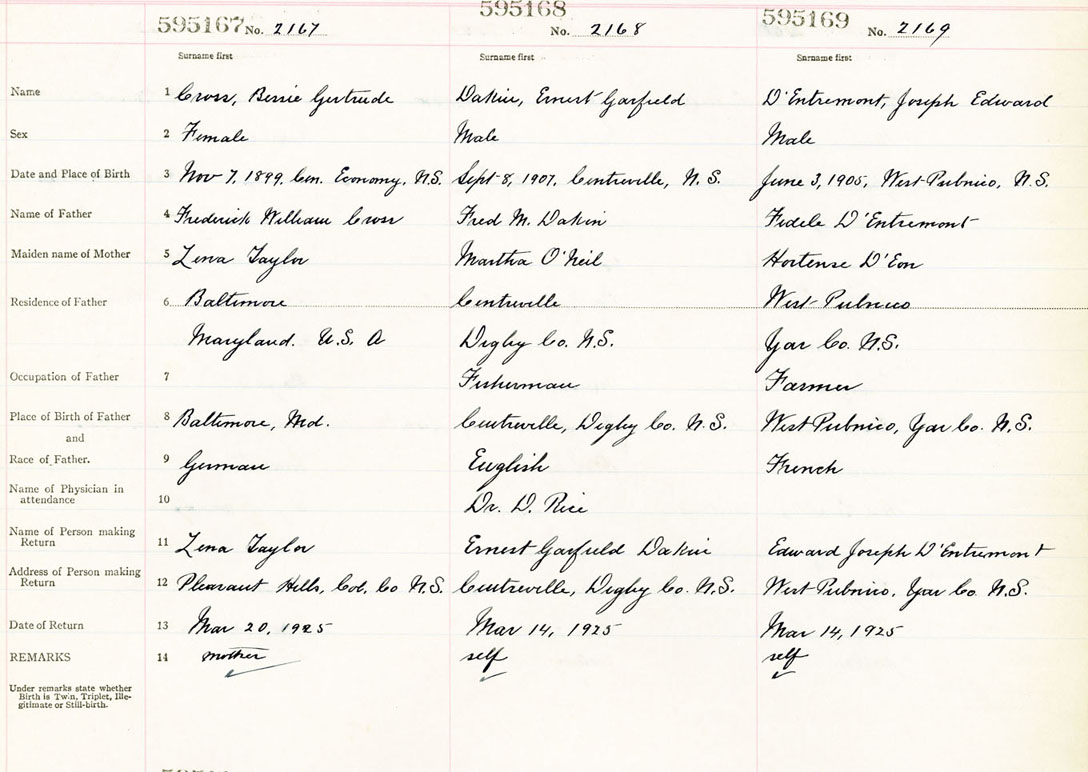 595167 No. 2167 595168 No. 2168 595169 No. 2169
Surname first Surname first Surname first
Name 1 Cross, Bessie Gertrude Dakin, Ernest Garfield D'Entremont, Joseph Edward
Sex 2 Female Male Male
Date and Place of Birth 3 Nov 7, 1899, Cen. Economy, N.S. Sept 8, 1907, Centreville, N.S. June 3, 1905, West Pubnico, N.S.
Name of Father 4 Frederick William Cross Fred M. Dakin Fidele D'Entremont
Maiden name of Mother 5 Lena Taylor Martha O'Neil Hortense D'Eon
Residence of Father 6 Baltimore Centreville West Pubnico
Maryland. U.S.A Digby Co. N.S. Yar Co. N.S.
Occupation of Father 7 Fisherman Farmer
Place of Birth of Father 8 Baltimore, Md. Centreville, Digby Co. N.S. West Pubnico, Yar Co. N.S.
and
Race of Father. 9 German English French
Name of Physician in
attendance 10 Dr. D. Rice
Name of Person making
Return 11 Lena Taylor Ernest Garfield Dakin Edward Joseph D'Entremont
Address of Person making
Return 12 Pleasant Hills, Col. Co N.S. Centreville, Digby Co. N.S. West Pubnico, Yar Co. N.S.
Date of Return 13 Mar 20, 1925 Mar 14, 1925 Mar 14, 1925
REMARKS 14 mother self self
Under remarks state whether
Birth is Twin, Triplet, Ille-
gitimate or Still-birth.